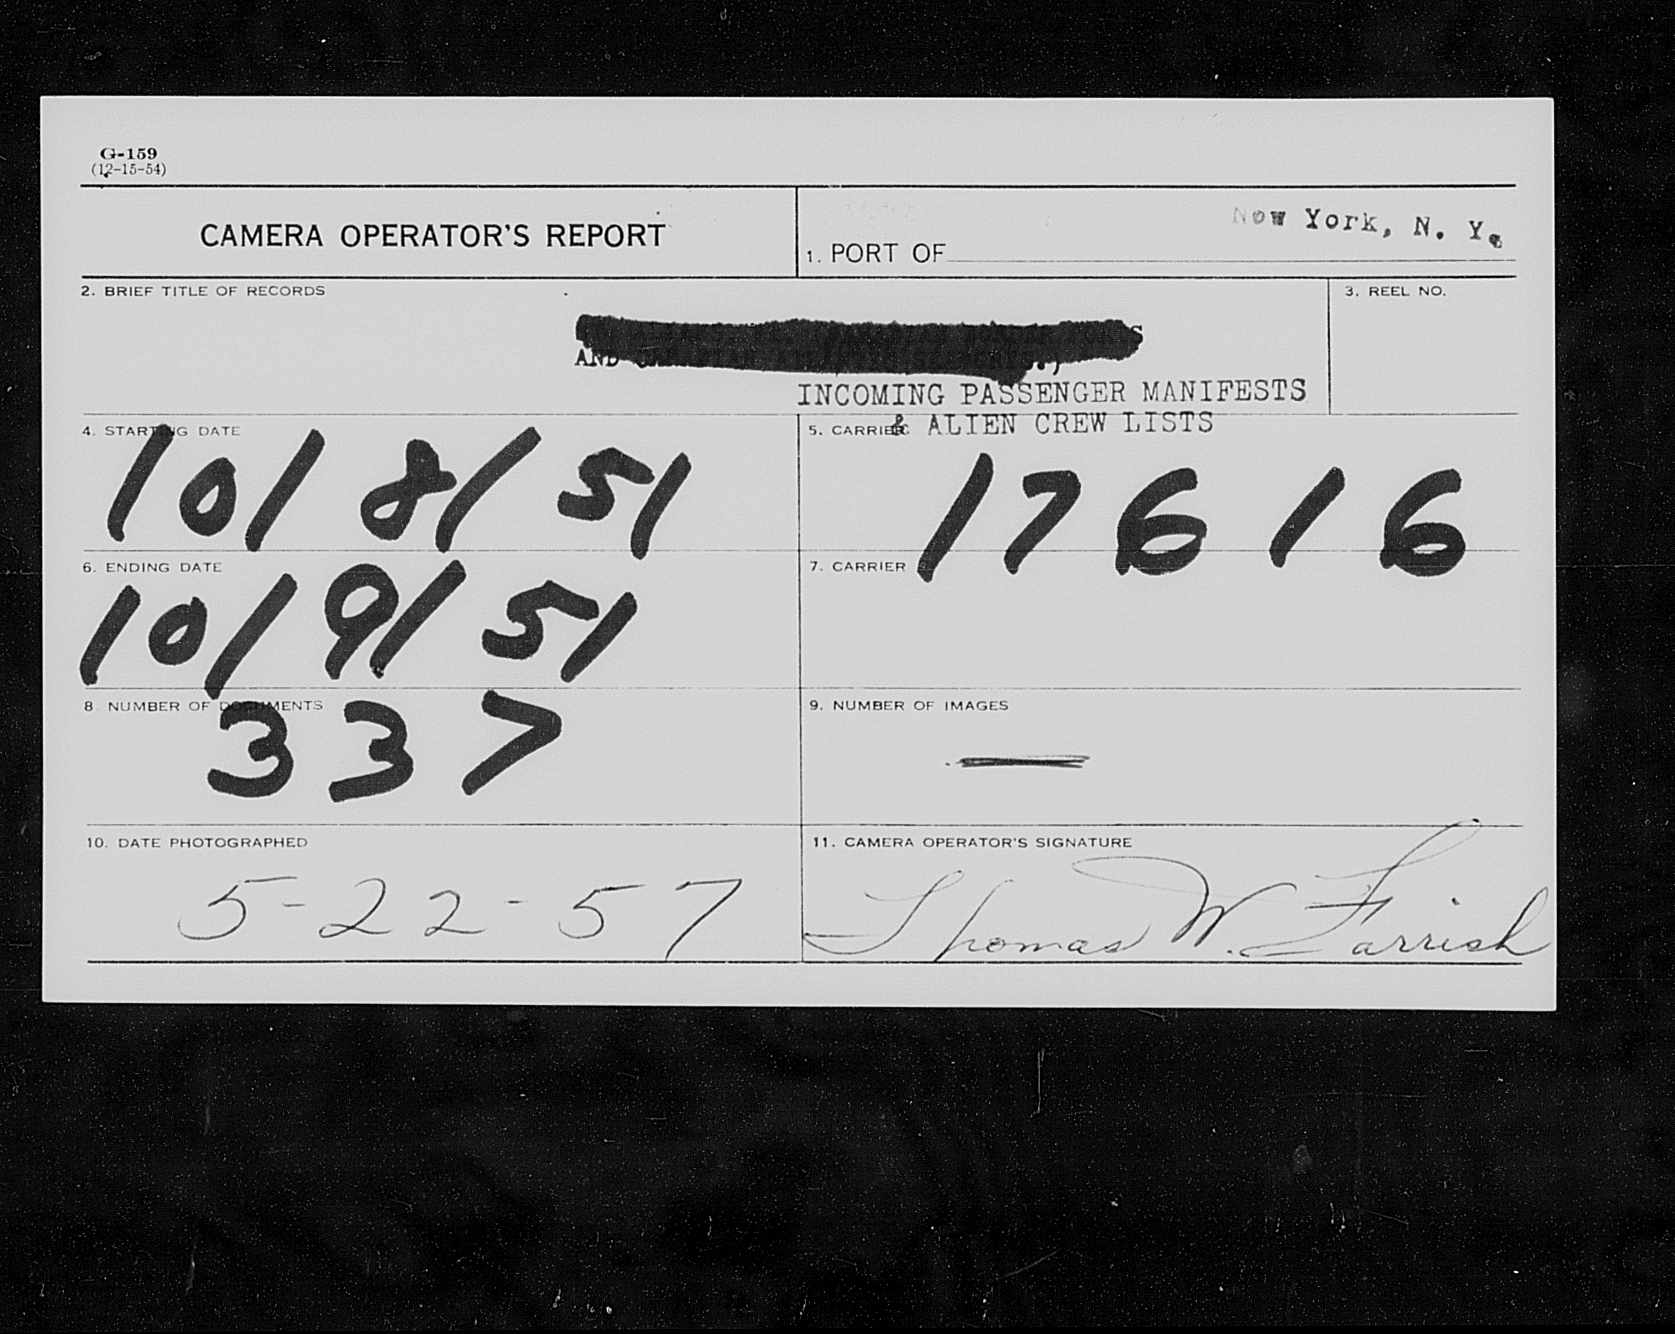 G-159
(12-15-54)
CAMERA OPERATOR'S REPORT
1. PORT OF New York, N. Y.
2. BRIEF TITLE OF RECORDS
3. REEL NO.
AND
INCOMING PASSENGER MANIFESTS
& ALIEN CREW LISTS
4. STARTING DATE
10/8/51
5. CARRIER
17616
6. ENDING DATE
10/9/51
7. CARRIER
8. NUMBER OF DOCUMENTS
337
9. NUMBER OF IMAGES
—
10. DATE PHOTOGRAPHED
5-22-57
11. CAMERA OPERATOR'S SIGNATURE
Thomas W. Farrish